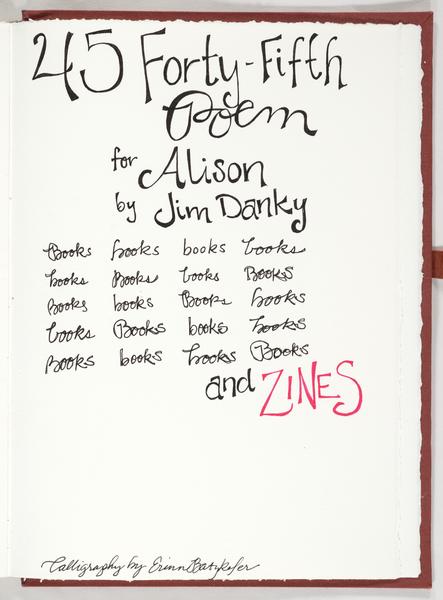 45 Forty-Fifth
Poem
for Alison
by Jim Danky
Books books books books
books Books books Books
Books books Books books
books Books books books
Books books books Books
and ZINES
Calligraphy by Erinn Batykefer